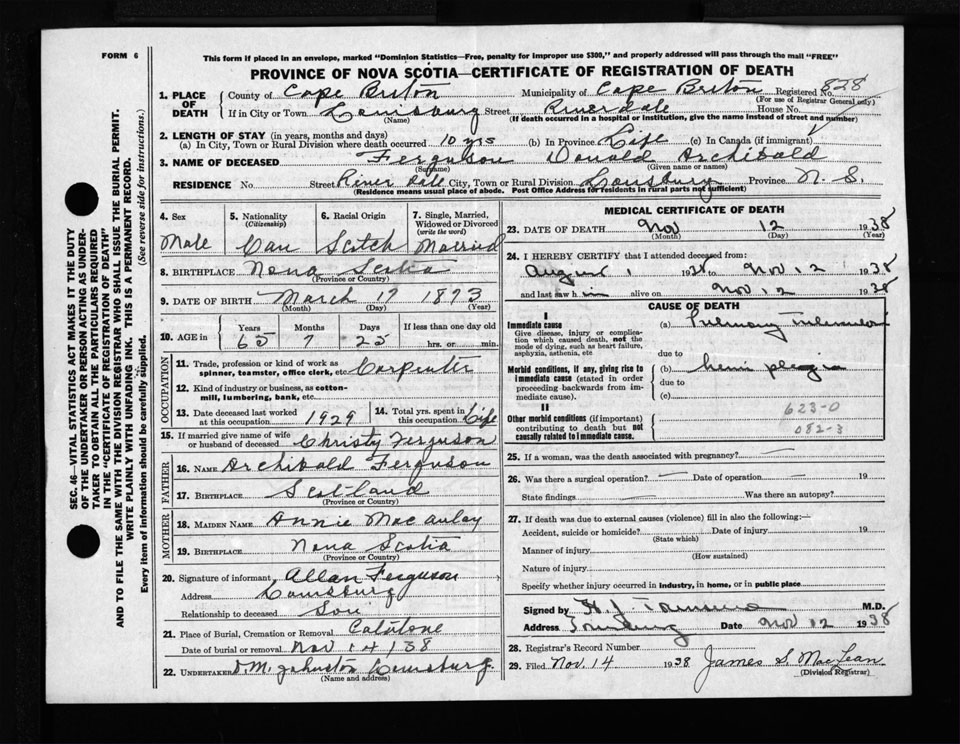 FORM 6
This form if placed in an envelope, marked "Dominion Statistics—Free, penalty for improper use $300," and properly addressed will pass through the mail "FREE"
PROVINCE OF NOVA SCOTIA—CERTIFICATE OF REGISTRATION OF DEATH
SEC. 46—VITAL STATISTICS ACT MAKES IT THE DUTY
OF THE UNDERTAKER OR PERSON ACTING AS UNDER-
TAKER TO OBTAIN ALL THE PARTICULARS REQUIRED
IN THE "CERTIFICATE OF REGISTRATION OF DEATH"
AND TO FILE THE SAME WITH THE DIVISION REGISTRAR WHO SHALL ISSUE THE BURIAL PERMIT.
WRITE PLAINLY WITH UNFADING INK. THIS IS A PERMANENT RECORD.
Every item of information should be carefully supplied. (See reverse side for instructions.)
1. PLACE OF DEATH
County of Cape Breton Municipality of Cape Breton Registered No. 828
(For use of Registrar General only)
If in City or Town Louisburg Street Riverdale House No.
(Name) (If death occurred in a hospital or institution, give the name instead of street and number)
2. LENGTH OF STAY (in years, months and days)
(a) In City, Town or Rural Division where death occurred 10 yrs (b) In Province Life (c) In Canada (if immigrant)
3. NAME OF DECEASED Ferguson Donald Archibald
(Surname) (Given name or names)
RESIDENCE No. Street River dale City, Town or Rural Division Louisburg Province N. S.
(Residence means usual place of abode. Post Office Address for residents in rural parts not sufficient)
4. Sex Male
5. Nationality (Citizenship) Can
6. Racial Origin Scotch
7. Single, Married, Widowed or Divorced (write the word) Married
8. BIRTHPLACE Nova Scotia
(Province or Country)
9. DATE OF BIRTH March 17 1873
(Month) (Day) (Year)
10. AGE in Years 65 Months 7 Days 25 If less than one day old hrs. or min.
OCCUPATION
11. Trade, profession or kind of work as spinner, teamster, office clerk, etc. Carpenter
12. Kind of industry or business, as cotton-mill, lumbering, bank, etc.
13. Date deceased last worked at this occupation 1929
14. Total yrs. spent in this occupation Life
15. If married give name of wife or husband of deceased Christy Ferguson
FATHER
16. NAME Archibald Ferguson
17. BIRTHPLACE Scotland
(Province or Country)
MOTHER
18. MAIDEN NAME Annie MacAulay
19. BIRTHPLACE Nova Scotia
(Province or Country)
20. Signature of informant Allan Ferguson
Address Louisburg
Relationship to deceased Son
21. Place of Burial, Cremation or Removal
Date of burial or removal Nov 14 / 38
22. UNDERTAKER D. M. Johnston Louisburg.
(Name and address)
MEDICAL CERTIFICATE OF DEATH
23. DATE OF DEATH Nov 12 1938
(Month) (Day) (Year)
24. I HEREBY CERTIFY that I attended deceased from:
August 1 1938 to Nov 12 1938
and last saw him alive on Nov 12 1938
CAUSE OF DEATH
I
Immediate cause (a) Pulmonary Tuberculosis
Give disease, injury or complication which caused death, not the mode of dying, such as heart failure, asphyxia, asthenia, etc
due to
Morbid conditions, if any, giving rise to immediate cause (stated in order proceeding backwards from immediate cause).
(b) hemi plegia
due to
(c)
II
Other morbid conditions (if important) contributing to death but not causally related to immediate cause.
623-0
082-3
25. If a woman, was the death associated with pregnancy?
26. Was there a surgical operation? Date of operation 19
State findings Was there an autopsy?
27. If death was due to external causes (violence) fill in also the following:—
Accident, suicide or homicide? Date of injury 19
(State which)
Manner of injury
(How sustained)
Nature of injury
Specify whether injury occurred in industry, in home, or in public place
Signed by H J M.D.
Address Louisburg Date Nov 12 1938
28. Registrar's Record Number
29. Filed Nov. 14 1938 James S. MacLean
(Division Registrar)